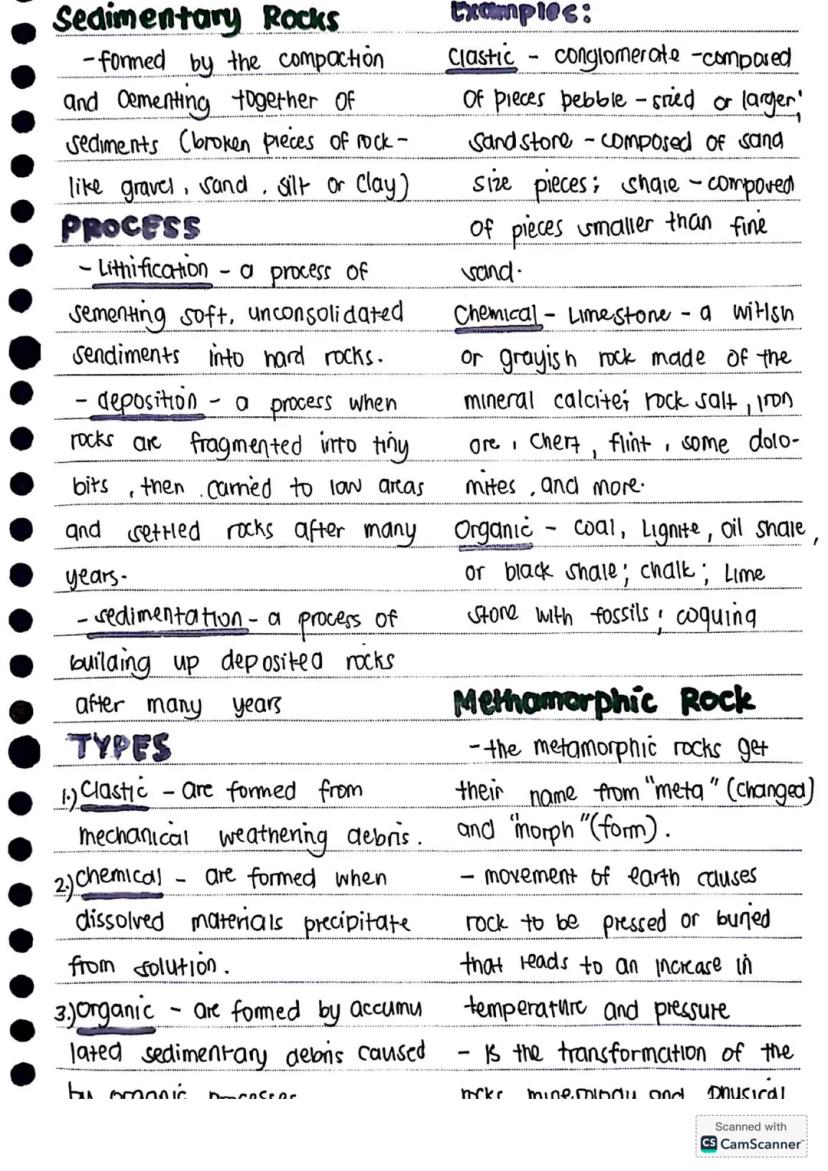 Sedimentary Rocks
-formed by the compaction
and cementing together of
sediments (broken pieces of rock-
like gravel, sand, silt or clay)
PROCESS
- Lithification - a process of
sementing soft, unconsolidated
sendiments into hard rocks.
- deposition - a process when
rocks are fragmented into tiny
bits, then carried to low areas
and settled rocks after many
years.
- sedimentation - a process of
building up deposited rocks
after many years
TYPES
1.) Clastic - are formed from
mechanical weathering debris.
2.) chemical - are formed when
dissolved materials precipitate
from solution.
3.) organic - are formed by accumu
lated sedimentary debris caused
by organic processes
Examples:
Clastic - conglomerate -composed
of pieces pebble - sized or larger;
sandstone - composed of sand
size pieces; shale - composed
of pieces smaller than fine
sand.
Chemical - Limestone - a witish
or grayish rock made of the
mineral calcite; rock salt, iron
ore, chert, flint, some dolo-
mites, and more.
Organic - coal, Lignite, oil shale,
or black shale; chalk; Lime
stone with fossils; coquing
Methamorphic Rock
-the metamorphic rocks get
their name from "meta" (changed)
and "morph" (form).
- movement of earth causes
rock to be pressed or buried
that leads to an increase in
temperature and pressure
- Is the transformation of the
rocks minerology and physical
Scanned with
CS CamScanner